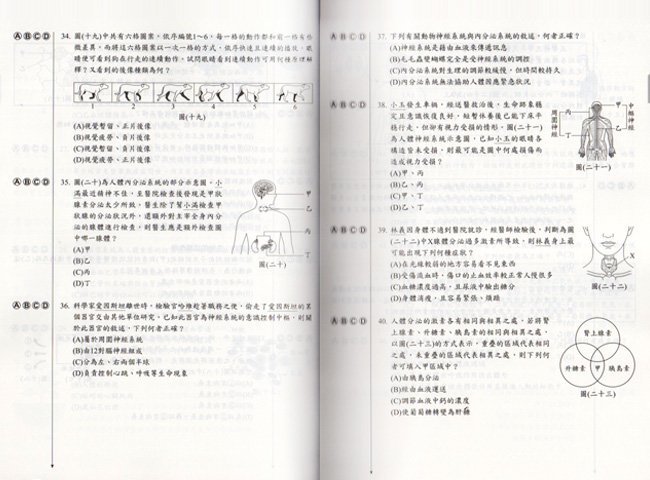 ⒶⒷⒸⒹ 34. 圖(十九)中共有六格圖案,依序編號1~6,每一格的動作都和前一格有些
微差異,而將這六格圖案以一次一格的方式,依序快速且連續的播放,眼
睛便可看到狗在行走的連續動作。試問眼睛看到連續動作可用何種原理解
釋?又看到的後像種類為何?
1 2 3 4 5 6
圖(十九)
(A)視覺暫留、正片後像
(B)視覺疲勞、負片後像
(C)視覺暫留、負片後像
(D)視覺疲勞、正片後像
ⒶⒷⒸⒹ 35. 圖(二十)為人體內分泌系統的部分示意圖,小
滿最近精神不佳,至醫院檢查後發現是甲狀
腺素分泌太少所致,醫生除了幫小滿檢查甲
狀腺的分泌狀況外,還額外對主宰全身內分
泌的腺體進行檢查,則醫生應是額外檢查圖
中哪一腺體?
(A)甲
(B)乙
(C)丙
(D)丁
甲
乙
丙
丁
圖(二十)
ⒶⒷⒸⒹ 36. 科學家愛因斯坦離世時,檢驗官哈維趁著職務之便,偷走了愛因斯坦的某
個器官交由其他單位研究。已知此器官為神經系統的意識控制中樞,則關
於此器官的敘述,下列何者正確?
(A)屬於周圍神經系統
(B)由12對腦神經組成
(C)分為左、右兩個半球
(D)負責控制心跳、呼吸等生命現象
ⒶⒷⒸⒹ 37. 下列有關動物神經系統與內分泌系統的敘述,何者正確?
(A)神經系統是藉由血液來傳遞訊息
(B)毛毛蟲變蝴蝶完全是受神經系統的調控
(C)內分泌系統對生理的調節較緩慢,但時間較持久
(D)內分泌系統無法協助人體因應緊急狀況
ⒶⒷⒸⒹ 38. 小玉發生車禍,經送醫救治後,生命跡象穩
定且意識恢復良好,經暫休養後已能下床平
穩行走,但卻有視力受損的情形。圖(二十一)
為人體神經系統示意圖,已知小玉的眼睛各
構造皆未受損,則最可能是圖中何處損傷而
造成視力受損?
(A)甲、丙
(B)乙、丙
(C)甲、丁
(D)乙、丁
周圍神經
丙
丁
甲
乙
中樞神經
圖(二十一)
ⒶⒷⒸⒹ 39. 林義因身體不適到醫院就診,經醫師檢驗後,判斷為圖
(二十二)中X腺體分泌過多激素所導致,則林義身上最
可能出現下列何種症狀?
(A)在光線較弱的地方容易看不見東西
(B)受傷流血時,傷口的止血效率較正常人慢很多
(C)血糖濃度過高,且尿液中驗出糖分
(D)身體消瘦,且容易緊張、煩躁
X
圖(二十二)
ⒶⒷⒸⒹ 40. 人體分泌的激素各有相同與相異之處,若將腎
上腺素、升糖素、胰島素的相同與相異之處,
以圖(二十三)的方式表示,重疊的區域代表相同
之處,未重疊的區域代表相異之處,則下列何
者可填入甲區域中?
(A)由胰島分泌
(B)經由血液運送
(C)調節血液中鈣的濃度
(D)使葡萄糖轉變為肝糖
腎上腺素
升糖素 甲 胰島素
圖(二十三)